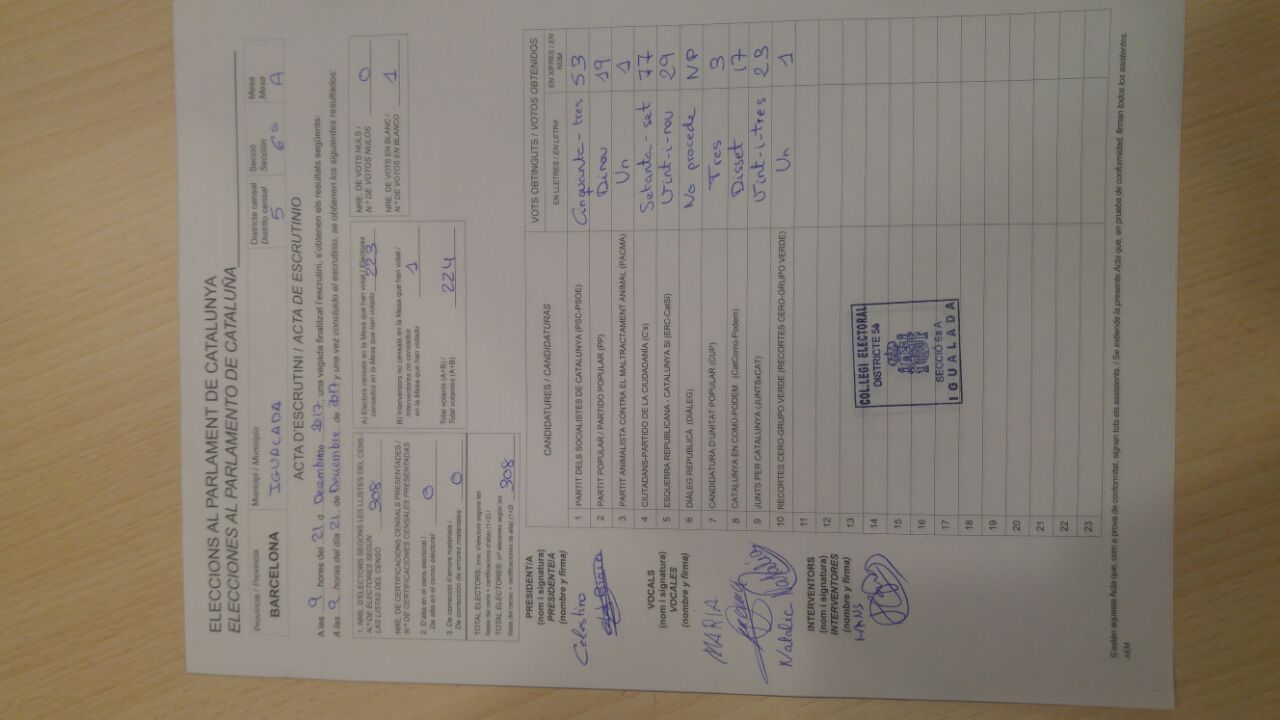 ELECCIONS AL PARLAMENT DE CATALUNYA
ELECCIONES AL PARLAMENTO DE CATALUÑA
Província / Provincia Municipi / Municipio Districte censal Secció Mesa
Distrito censal Sección Mesa
BARCELONA IGUALADA 5 6a A
ACTA D'ESCRUTINI / ACTA DE ESCRUTINIO
A les 9 hores del 21 d Desembre de 2017, una vegada finalitzat l'escrutini, s'obtenen els resultats següents:
A las 9 horas del día 21 de Decembre de 2017 y una vez concluido el escrutinio, se obtienen los siguientes resultados:
1. NRE. D'ELECTORS SEGONS LES LLISTES DEL CENS /
N.º DE ELECTORES SEGÚN
LAS LISTAS DEL CENSO 308
NRE. DE CERTIFICACIONS CENSALS PRESENTADES /
N.º DE CERTIFICACIONES CENSALES PRESENTADAS
2. D'alta en el cens electoral /
De alta en el censo electoral: 0
3. De correcció d'errors materials /
De corrección de errores materiales: 0
TOTAL ELECTORS: (nre. d'electors segons les
llistes del cens + certificacions d'alta) (1+2) /
TOTAL ELECTORES: (nº electores según las
listas del censo + certificaciones de alta) (1+2) 308
A) Electors censats en la Mesa que han votat / Electores
censados en la Mesa que han votado 223
B) Interventors no censats en la Mesa que han votat /
Interventores no censados
en la Mesa que han votado 1
Total votants (A+B) /
Total votantes (A+B) 224
NRE. DE VOTS NULS /
N.º DE VOTOS NULOS 0
NRE. DE VOTS EN BLANC /
N.º DE VOTOS EN BLANCO 1
PRESIDENT/A
(nom i signatura)
PRESIDENTE/A
(nombre y firma)
Celestino
VOCALS
(nom i signatura)
VOCALES
(nombre y firma)
MARIA
Natalie
INTERVENTORS
(nom i signatura)
INTERVENTORES
(nombre y firma)
CANDIDATURES / CANDIDATURAS VOTS OBTINGUTS / VOTOS OBTENIDOS
EN LLETRES / EN LETRA EN XIFRES / EN NÚM.
1 PARTIT DELS SOCIALISTES DE CATALUNYA (PSC-PSOE) Cinquanta-tres 53
2 PARTIT POPULAR / PARTIDO POPULAR (PP) Dinou 19
3 PARTIT ANIMALISTA CONTRA EL MALTRACTAMENT ANIMAL (PACMA) Un 1
4 CIUTADANS-PARTIDO DE LA CIUDADANÍA (C's) Setanta-set 77
5 ESQUERRA REPUBLICANA - CATALUNYA SÍ (ERC-CatSí) Vint-i-nou 29
6 DIÀLEG REPUBLICÀ (DIÀLEG) No procede NP
7 CANDIDATURA D'UNITAT POPULAR (CUP) Tres 3
8 CATALUNYA EN COMÚ-PODEM (CatComú-Podem) Disset 17
9 JUNTS PER CATALUNYA (JUNTSxCAT) Vint-i-tres 23
10 RECORTES CERO-GRUPO VERDE (RECORTES CERO-GRUPO VERDE) Un 1
11
12
13
14
15
16
17
18
19
20
21
22
23
COL.LEGI ELECTORAL
DISTRICTE 5è
SECCIÓ 6a A
IGUALADA
S'estén aquesta Acta que, com a prova de conformitat, signen tots els assistents. / Se extiende la presente Acta que, en prueba de conformidad, firman todos los asistentes.
AEM